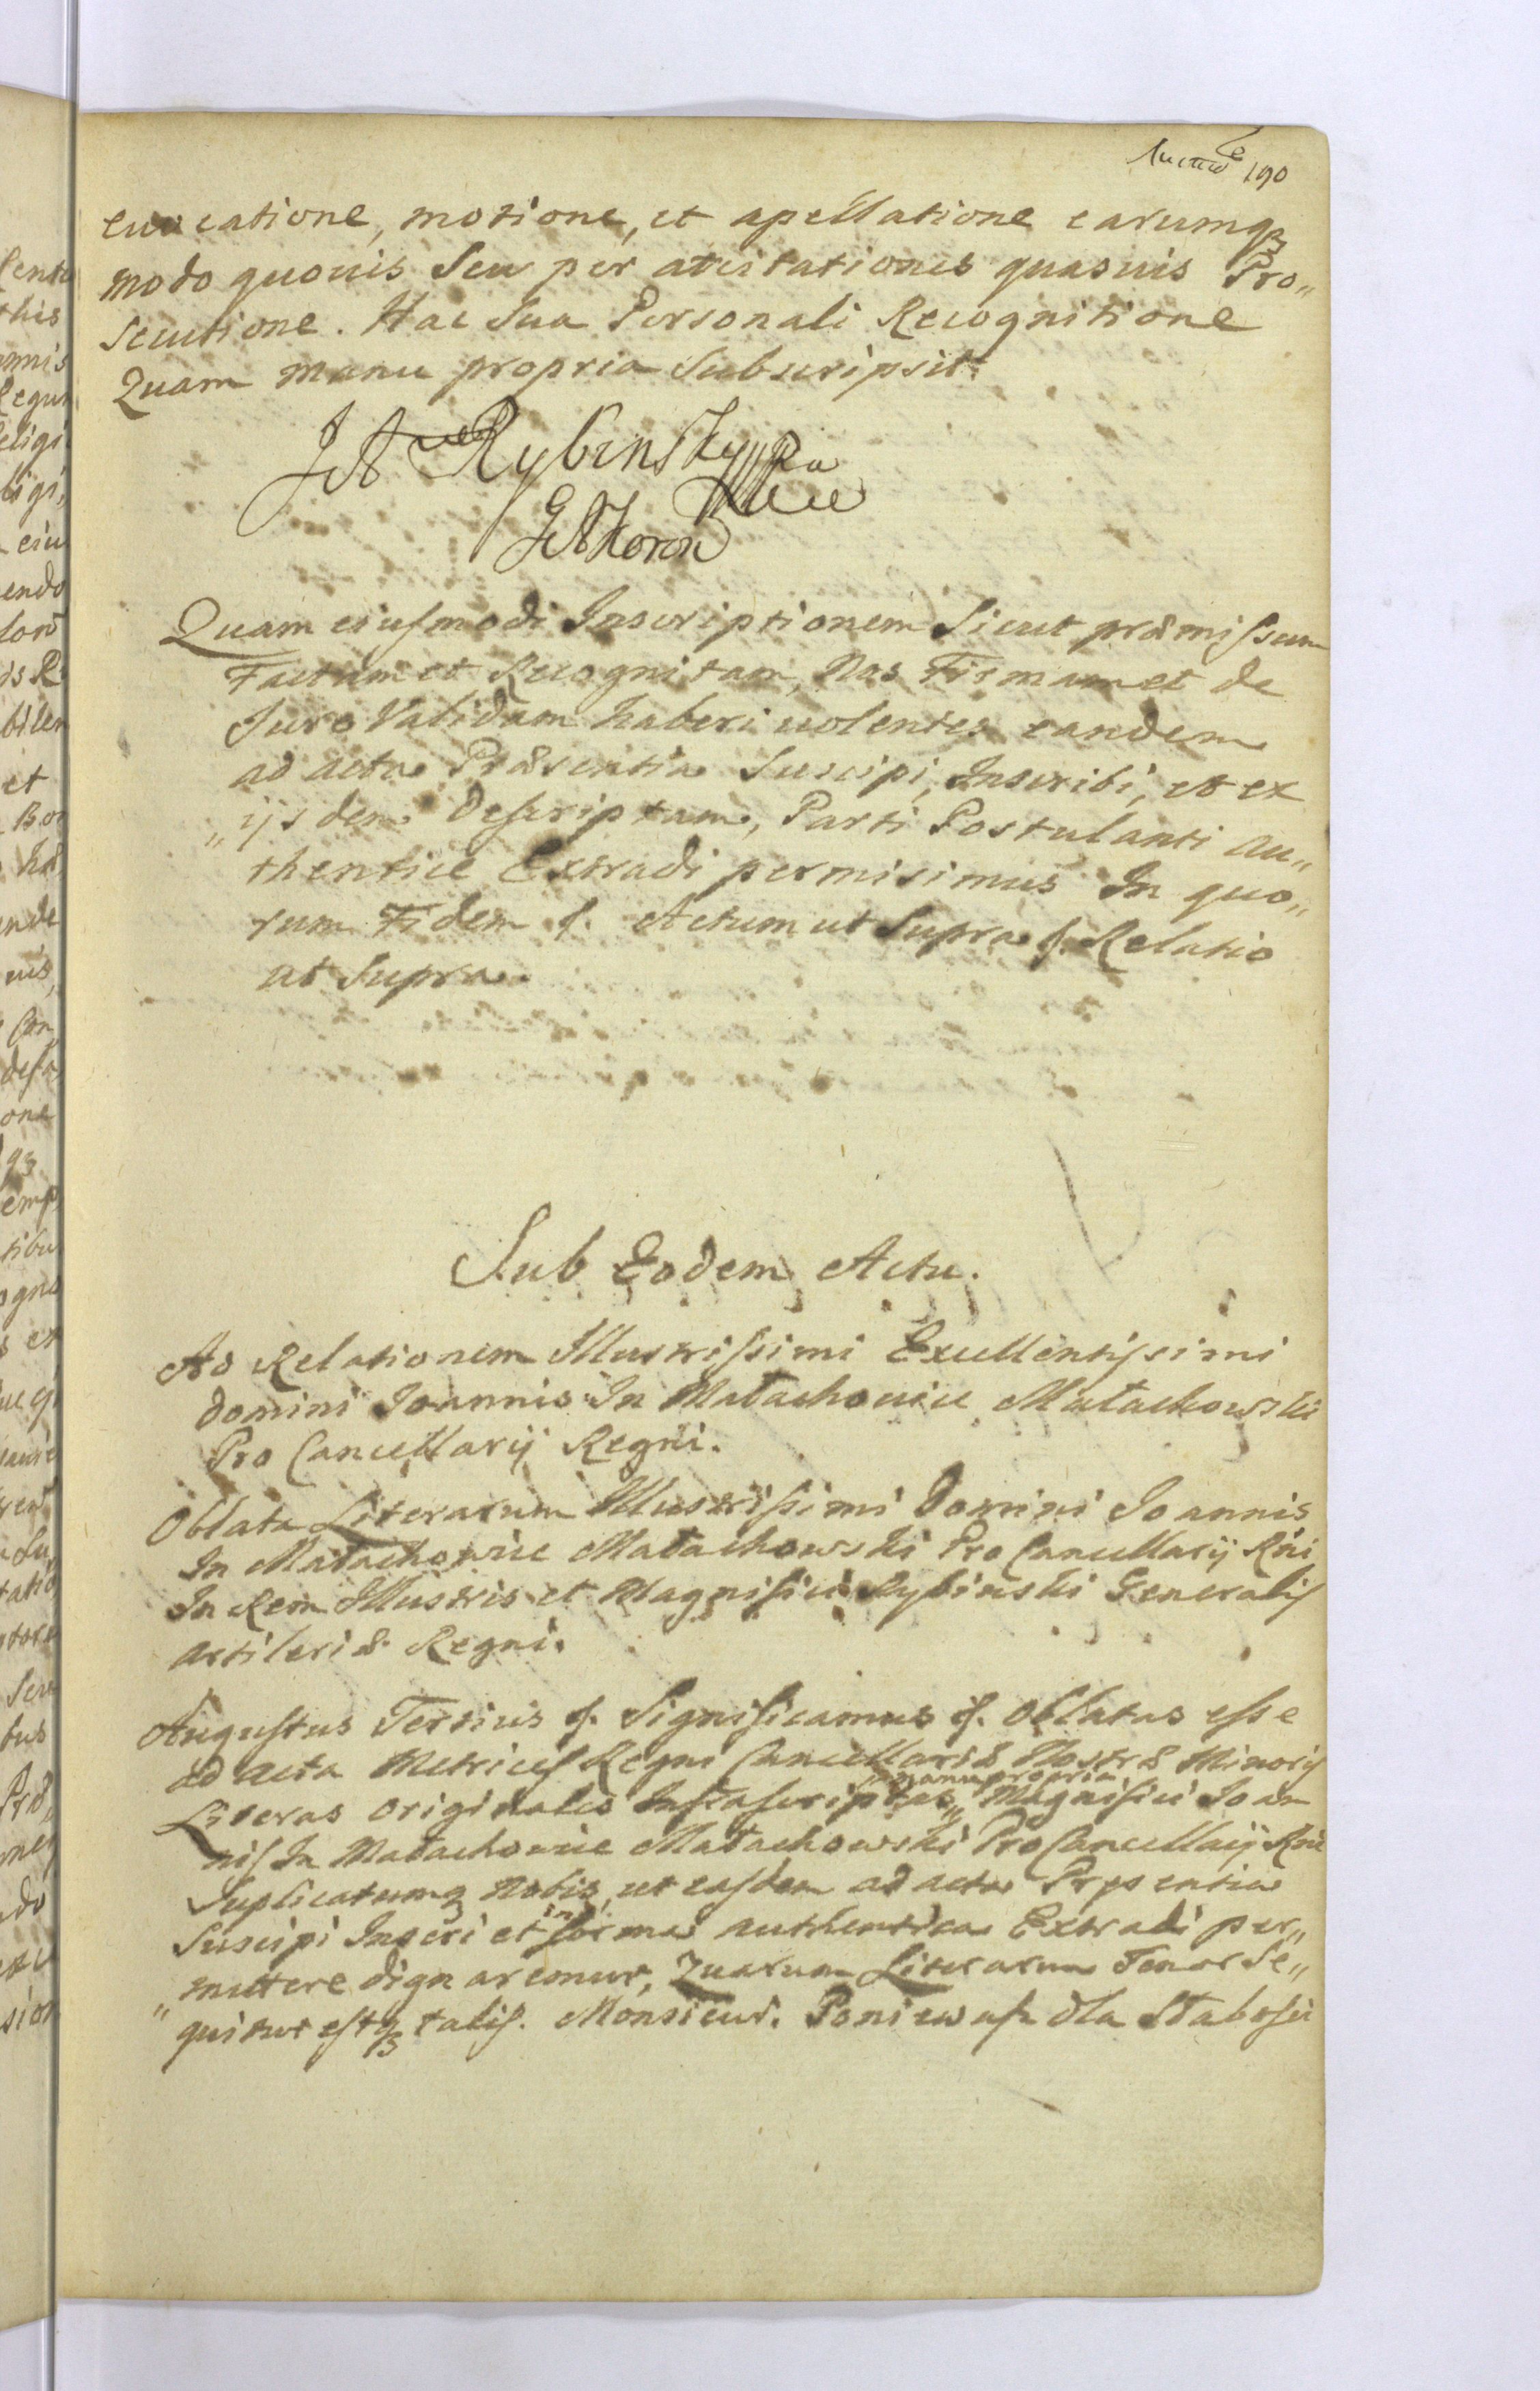 190
euocatione, motione, et apellatione earumqꝫ
modo quouis Seu per atestationes quasuis Pro„
secutione. Hac Sua Personali Recognitione
Quam manu propria Subscripsit.
Rybinsky
Quam eiusmodi Inscriptionem Sicut præmissum
Factam et Recognitam, Nos Firmam et de
Jure Validam haberi uolentes eandem
ad acta Præsentia Suscipi, Inscribi, et ex
„ijsdem Descriptam, Parti Postulanti au„
thentice Extradi permisimus In quo„
rum Fidem &. Actum ut Supra &. Relatio
ut Supra.
Sub Eodem Actu.
Ad Relationem Illustrissimi Excellentissimi
Domini Joannis In Małachowice Małachowski
Pro Cancellarij Regni.
Oblata Literarum Illustrissimi Domini Joannis
In Małachowice Małachowski Pro Cancellarij Rni
In Rem Illustris et Magnifici Rybinski Generalis
artileriæ Regni.
Augustus Tertius &. Significamus &. Oblatas esse
ad acta Metrices Regni Cancellariæ Nostræ Minoris
Literas originales Infrascriptas „manu propria„ Magnifici Joan
nis In Małachowice Małachowski Pro Cancellarij Rni
Suplicatumqꝫ Nobis, ut easdem ad acta Præsentia
Suscipi Inseri et in forma authentica Extradi per„
„mittere dignaremur, Quarum Literarum Tenor Se„
quitur estqꝫ talis. Monsieur. Poniewasz dla Słabości